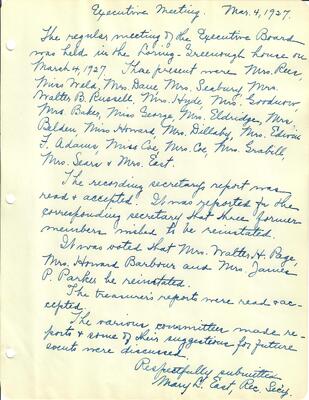 Executive Meeting. Mar. 4, 1927.
The regular meeting of the Executive Board
was held in the Loring-Greenough house on
March 4, 1927. Those present were Mrs. Rees,
Miss Weld, Mrs. Dave Mrs. Seabury Mrs.
Walter B. Russell, Mrs. Hyde, Mrs. Goodnow,
Mrs. Baker, Miss George, Mrs. Eldridge, Mrs.
Belden, Miss Howard, Mrs. Dillaby, Mrs. Edwin
F. Adams, Miss Coe, Mrs. Coe, Mrs. Grabill,
Mrs. Sears & Mrs. East.
The recording secretary's report was
read & accepted. It was reported for the
corresponding secretary that three former
members wished to be reinstated.
It was voted that Mrs. Walter H. Page,
Mrs. Howard Barbour and Mrs. James
P. Parker be reinstated.
The treasurer's reports were read & ac-
cepted.
The various committees made re-
ports & some of their suggestions for future
events were discussed.
Respectfully submitted
Mary B. East, Rec. Sec'y.